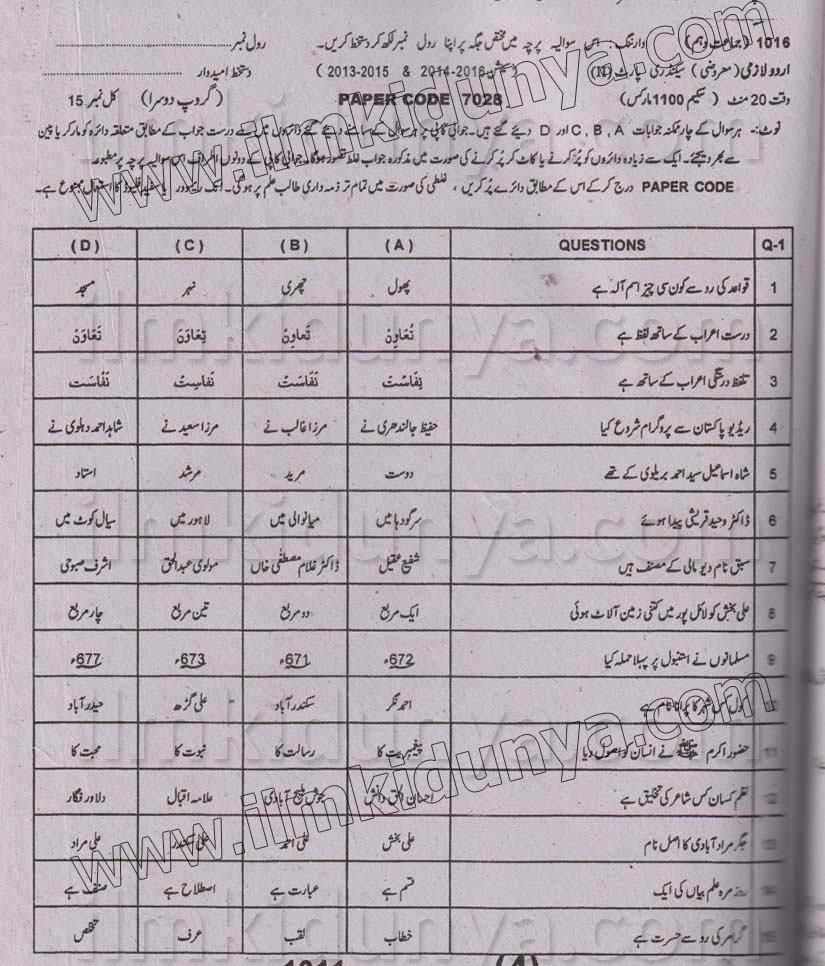 1016 (جماعت دہم) وارننگ: اس سوالیہ پرچہ میں مختص جگہ پر اپنا رول نمبر لکھ کر دستخط کریں۔ رول نمبر
اردو لازمی (معروضی) سیکنڈری پارٹ (II) (سیشن 2016-2014 & 2015-2013) دستخط امیدوار
وقت 20 منٹ (سکیم 1100 مارکس) PAPER CODE 7028 (گروپ دوسرا) کل نمبر 15
نوٹ:- ہر سوال کے چار ممکنہ جوابات A, B, C اور D دیئے گئے ہیں۔ جوابی کاپی پر ہر سوال کے سامنے دیئے گئے دائروں میں سے درست جواب کے مطابق متعلقہ دائرہ کو مارکر یا پین
سے بھر دیجئے۔ ایک سے زیادہ دائروں کو پُر کرنے یا کاٹ کر پُر کرنے کی صورت میں مذکورہ جواب غلط تصور ہوگا۔ جوابی کاپی کے دونوں اطراف اس سوالیہ پرچہ پر مطبوعہ
PAPER CODE درج کر کے اس کے مطابق دائرے پُر کریں، غلطی کی صورت میں تمام تر ذمہ داری طالب علم پر ہوگی۔ انک ریموور یا سفید فلیوڈ کا استعمال ممنوع ہے۔
Q-1 QUESTIONS (A) (B) (C) (D)
1 قواعد کی رو سے کون سی چیز اسم آلہ ہے پھول چھری نہر مسجد
2 درست اعراب کے ساتھ لفظ ہے تُعاوِنْ تَعاوِنْ تِعاوَنْ تَعَاوُنْ
3 تلفظ درستگی اعراب کے ساتھ ہے نِفاسُت نَفَاسَت نَفاسِت نُفَاسَت
4 ریڈیو پاکستان سے پروگرام شروع کیا حفیظ جالندھری نے مرزا غالب نے مرزا سعید نے شاہد احمد دہلوی نے
5 شاہ اسماعیل سید احمد بریلوی کے تھے دوست مرید مرشد استاد
6 ڈاکٹر وحید قریشی پیدا ہوئے سرگودہا میں میانوالی میں لاہور میں سیال کوٹ میں
7 سبق نام دیو مالی کے مصنف ہیں شفیع عقیل ڈاکٹر غلام مصطفٰی خاں مولوی عبدالحق اشرف صبوحی
8 علی بخش کو لائل پور میں کتنی زمین آلاٹ ہوئی ایک مربع دو مربع تین مربع چار مربع
9 مسلمانوں نے استنبول پر پہلا حملہ کیا 672ء 671ء 673ء 677ء
کول کس شہر کا پرانا نام ہے احمد نگر سکندر آباد علی گڑھ حیدر آباد
11 حضور اکرم ﷺ نے انسان کو اصول دیا پیغمبریت کا رسالت کا نبوت کا محبت کا
12 نظم کسان کس شاعر کی تخلیق ہے احسان الحق دانش جوش ملیح آبادی علامہ اقبال دلاور فگار
جگر مراد آبادی کا اصل نام علی بخش علی احمد علی سکندر علی مراد
روز مرہ علم بیاں کی ایک قسم ہے عبارت ہے اصطلاح ہے صنف ہے
گرامر کی رو سے حسرت ہے خطاب لقب عرف تخلص
www.ilmkidunya.com
www.ilmkidunya.com
ilmkidunya.com